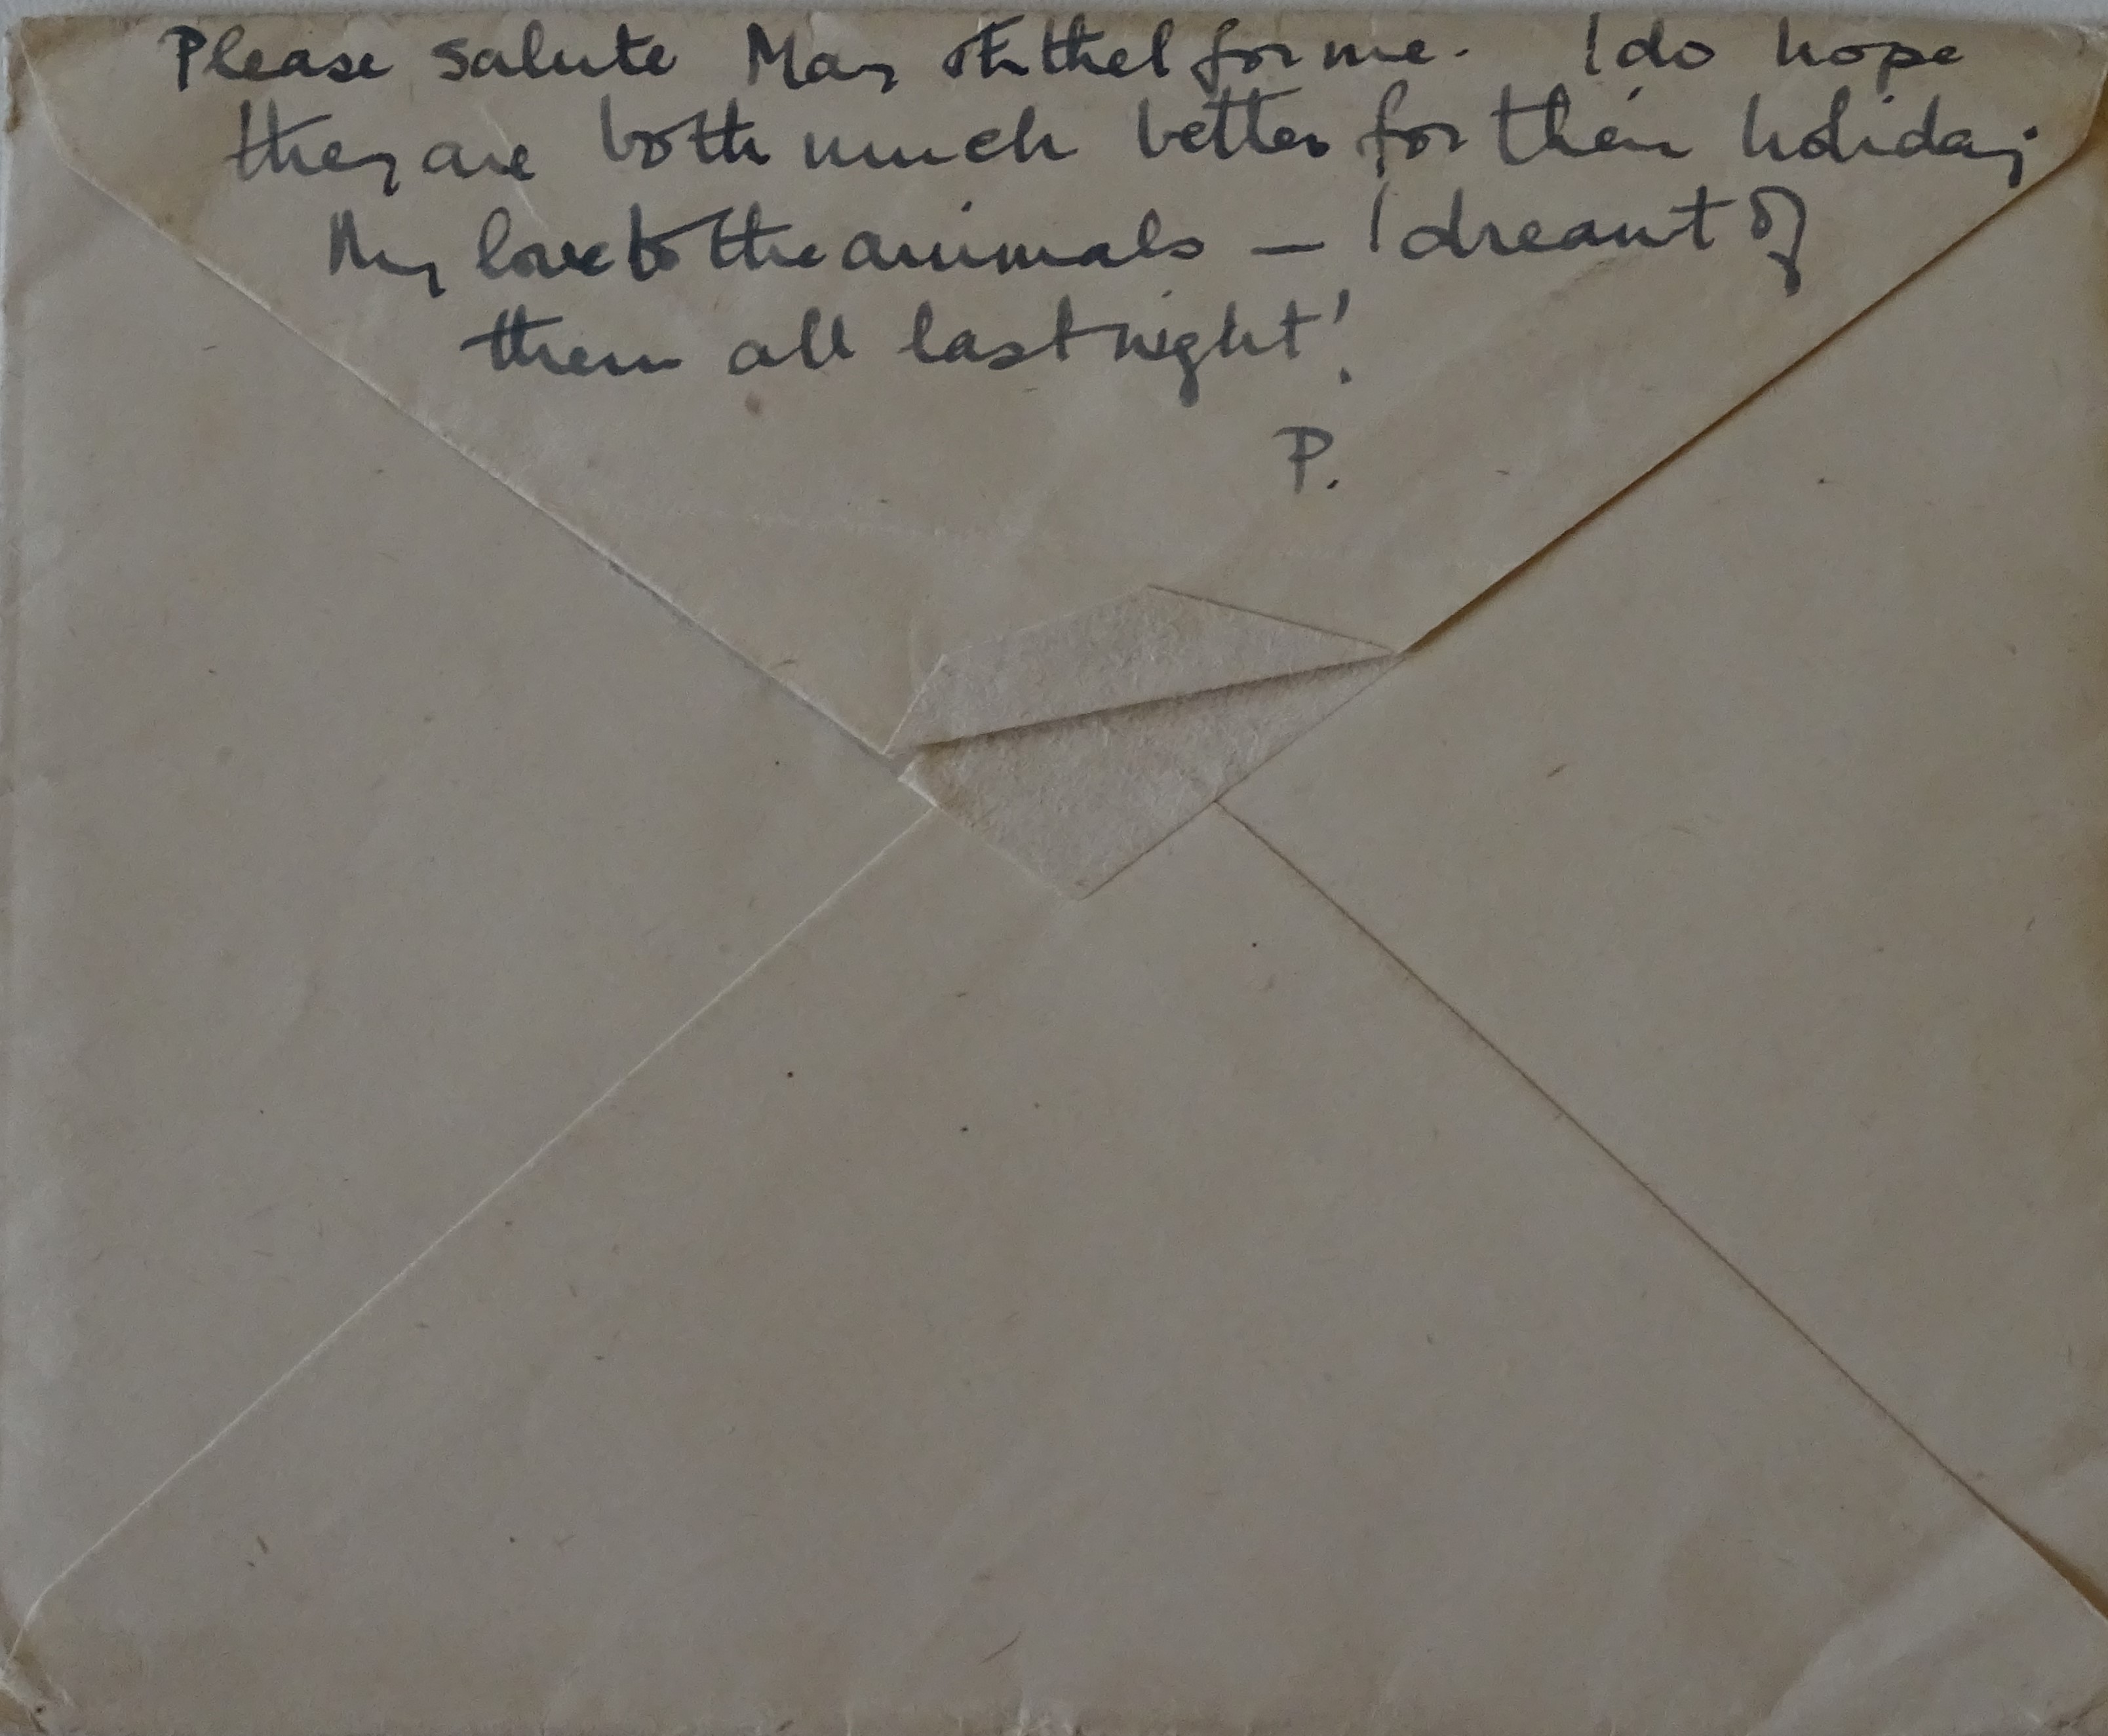 Please salute May & Ethel for me. I do hope
they are both much better for their holiday.
My love to the animals — I dreamt of
them all last night!
P.